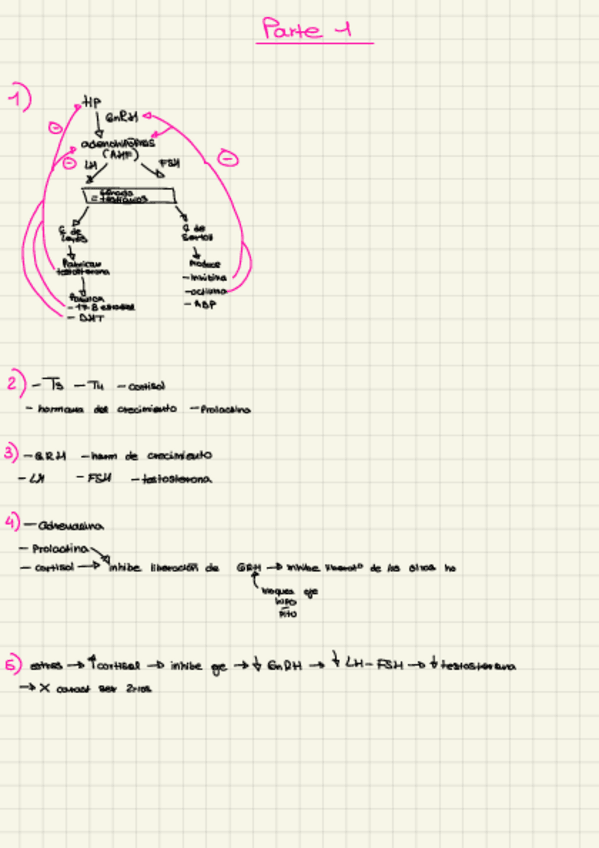 Parte 1
1)
HP
GnRH
adenohipófisis
(AHF)
LH
FSH
Gónada
= testículos
C de
Leydig
C de
Sertoli
Fabrican
testosterona
Produce
- Inhibina
- activina
- ABP
- 17-B estradiol
- DHT
2) - T3 - T4 - cortisol
- hormona del crecimiento - Prolactina
3) - GRH - horm de crecimiento
- LH - FSH - testosterona
4) - Adrenalina
- Prolactina
- cortisol → inhibe liberación de GRH → inhibe liberac° de las otras ho
bloquea eje
HIPO
PITO
5) estres → ↑cortisol → inhibe eje → ↓ GnRH → ↓ LH-FSH → ↓ testosterona
→ X caract sex 2rios